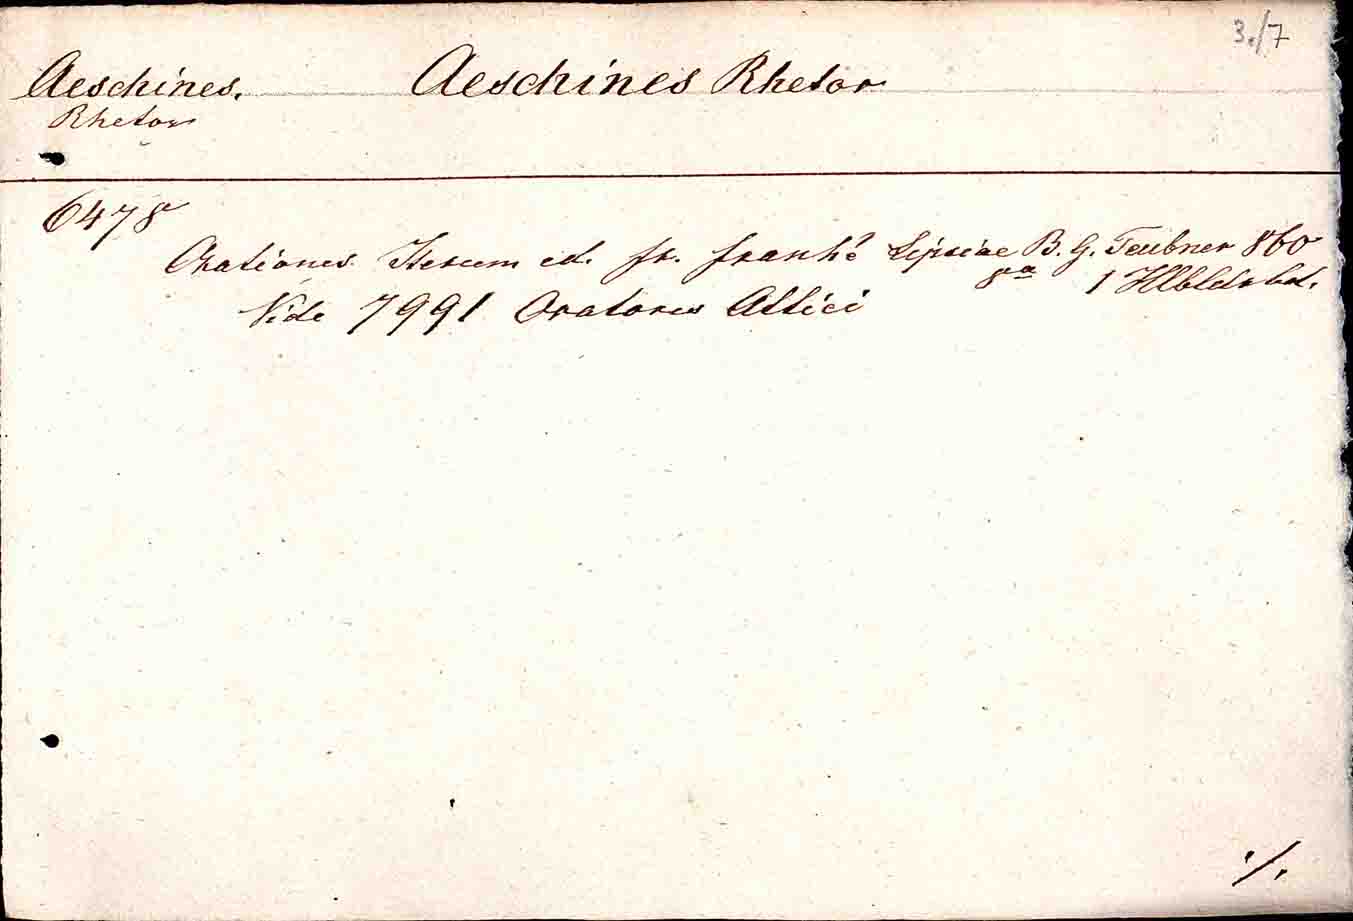 3./7
Aeschines. Aeschines Rhetor
Rhetor
6478
Orationes. Iterum ed. fr. franké Lipsiae B. G. Teubner 860
8º 1 Hlbldrbd.
Vide 7991 Oratores Attici
./.